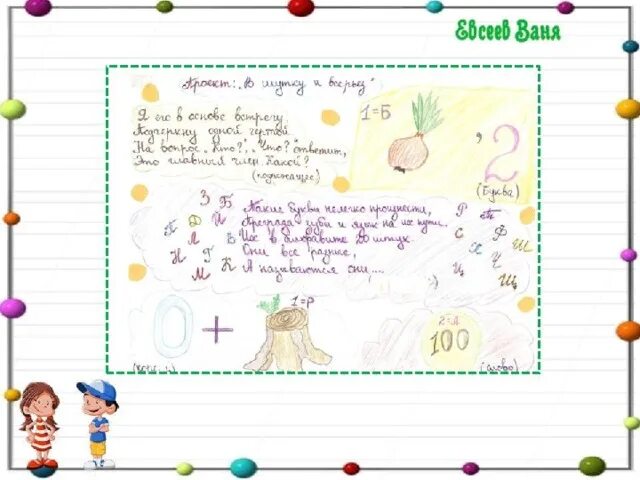 Евсеев Ваня
Проект: „В шутку и всерьёз"
Я его в основе встречу
Подчеркну одной чертой.
На вопрос „Кто?", „Что?" ответит,
Это главный член. Какой?
(подлежащее)
1=Б
, 2
(Буква)
З Б
П Д Й
Л В
Н Г
М К
Такие буквы нелегко произнести,
Преграда губы и язык на их пути.
Их в алфавите 20 штук.
Они все разные,
А называются они,...
Р Т
С Ф
Х Ш
Ц Ч
Щ
0 +
1=Р
2=Л
100
(слово)